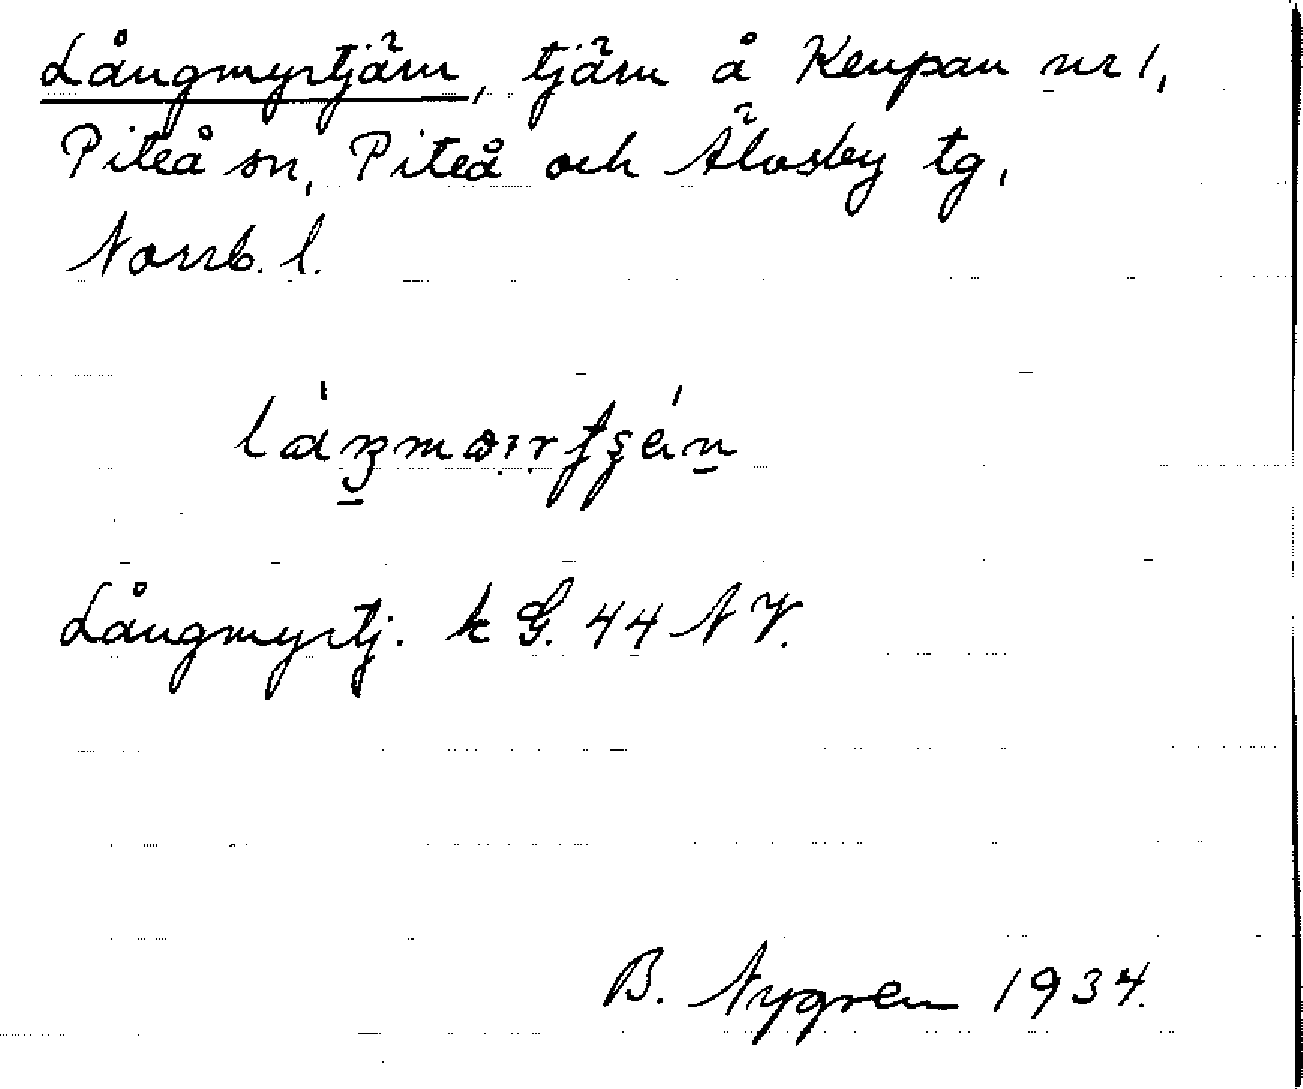 Långmyrtjärn, tjärn å Kenpan nr 1,
Piteå sn, Piteå och Älvsby tg,
Norrb. l.
Långmyrtj. k G. 44 NV.
B. Nygren 1934.